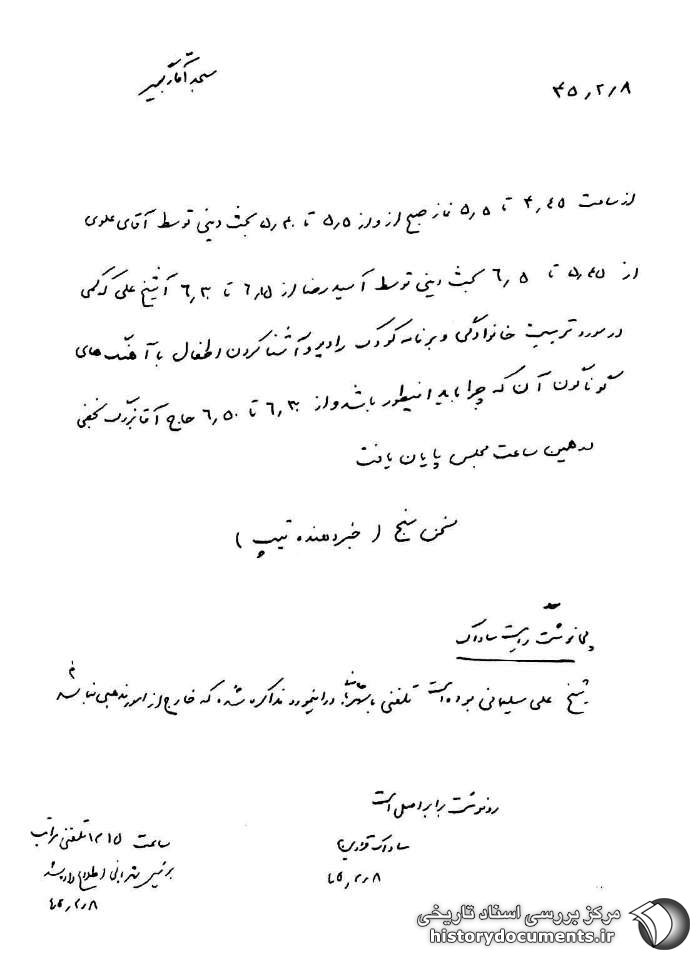 ۴۵/۲/۸
مسجد آقاکبیر
از ساعت ۴/۴۵ تا ۵/۰۵ نماز صبح از و از ۵/۵ تا ۵/۴۰ بحث دینی توسط آقای علوی
از ۵/۴۵ تا ۶/۰۵ بحث دینی توسط آسید رضا از ۶/۱۵ تا ۶/۳۰ آشیخ علی که کمی
در مورد تربیت خانوادگی و برنامه کودک رادیو و آشنا کردن اطفال با آهنگ‌های
گوناگون آن که چرا باید اینطور باشد و از ۶/۳۰ تا ۶/۵۰ حاج آقا بزرگ نجفی
در همین ساعت مجلس پایان یافت
سخن سنج ( خبر دهنده تیپ )
پی‌نوشت ریاست ساواک
شیخ علی سلیمانی بوده است تلفنی با شهربانی در اینمورد مذاکره شد که خارج از امور مذهبی نباشد
رونوشت برابر اصل است
ساواک قزوین
۴۵/۲/۸
ساعت ۱۲۱۵ تلفنی مراتب
به رئیس شهربانی اطلاع داده شد
۴۵/۲/۸
مرکز بررسی اسناد تاریخی
historydocuments.ir